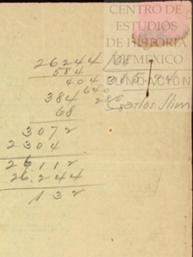 CENTRO DE
ESTUDIOS
DE HISTORIA
DE MEXICO
FUNDACIÓN
Carlos Slim
26244 68
584
404
640
28
384
68
3072
2304
26112
26.244
132